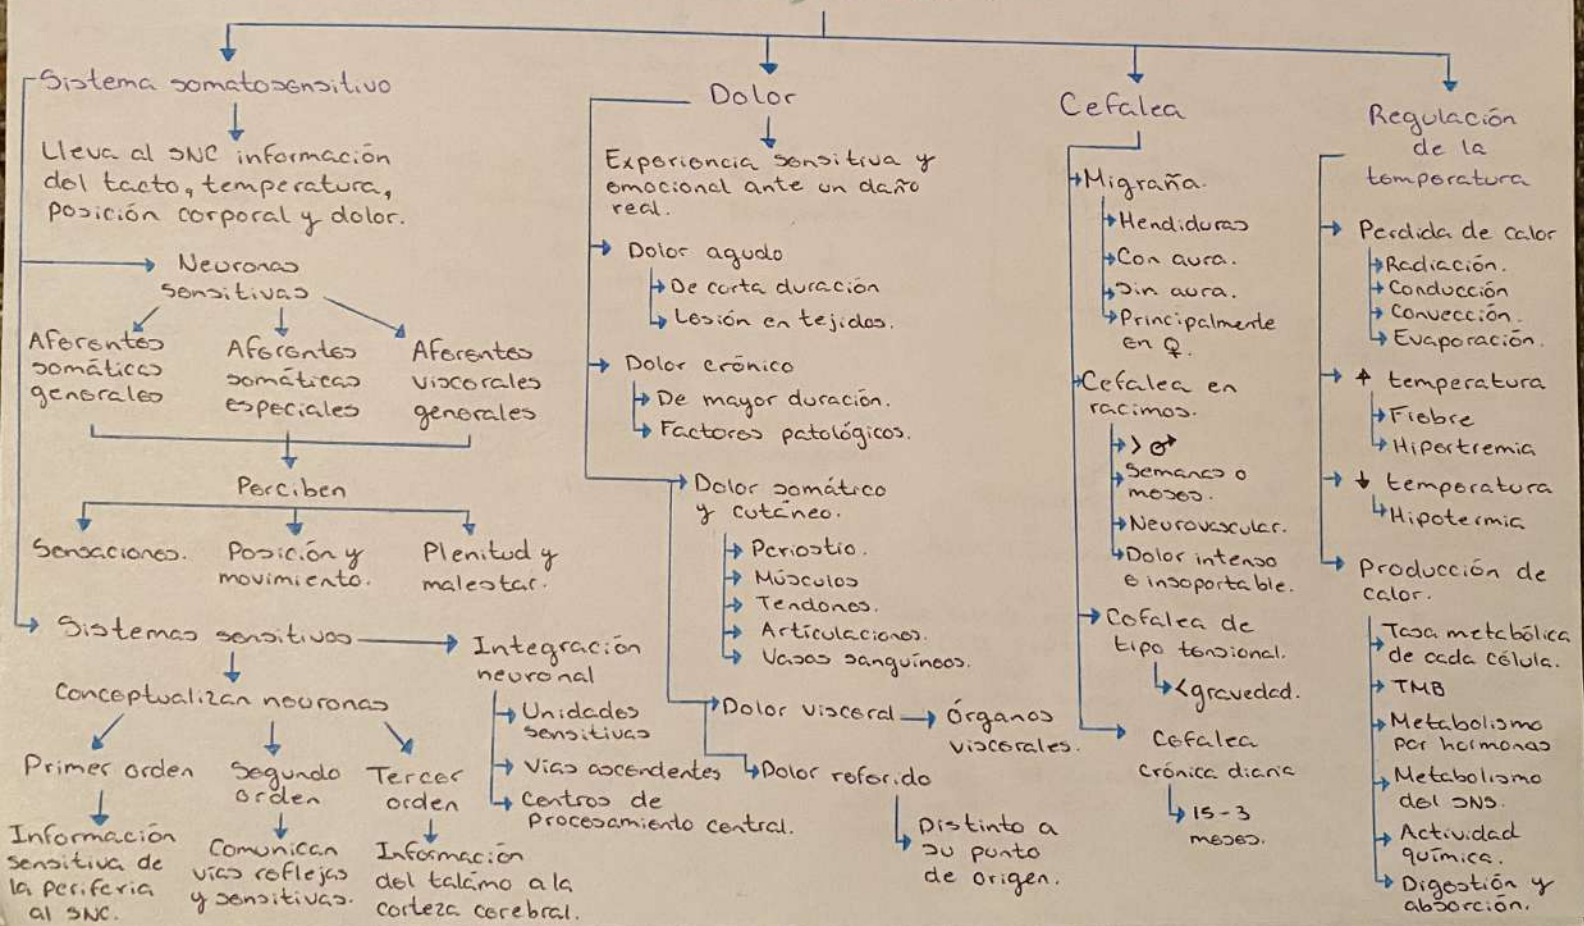 Sistema somatosensitivo
Lleva al SNC información
del tacto, temperatura,
posición corporal y dolor.
Neuronas
sensitivas
Aferentes
somáticas
generales
Aferentes
somáticas
especiales
Aferentes
viscerales
generales
Perciben
Sensaciones.
Posición y
movimiento.
Plenitud y
malestar.
Sistemas sensitivos
Conceptualizan neuronas
Primer orden
Información
sensitiva de
la periferia
al SNC.
Segundo
orden
Comunican
vías reflejas
y sensitivas.
Tercer
orden
Información
del talámo a la
corteza cerebral.
Integración
neuronal
Unidades
sensitivas
Vías ascendentes
Centros de
procesamiento central.
Dolor
Experiencia sensitiva y
emocional ante un daño
real.
Dolor agudo
De corta duración
Lesión en tejidos.
Dolor crónico
De mayor duración.
Factores patológicos.
Dolor somático
y cutáneo.
Periostio.
Músculos
Tendones.
Artículaciones.
Vasos sanguíneos.
Dolor visceral
Órganos
viscerales.
Dolor referido
Distinto a
su punto
de origen.
Cefalea
Migraña.
Hendiduras
Con aura.
Sin aura.
Principalmente
en ♀.
Cefalea en
racimos.
> ♂
Semanas o
meses.
Neurovascular.
Dolor intenso
e insoportable.
Cefalea de
tipo tensional.
< gravedad.
Cefalea
crónica diaria
15-3
meses.
Regulación
de la
temperatura
Perdida de calor
Radiación.
Conducción
Convección.
Evaporación.
↑ temperatura
Fiebre
Hipertremia
↓ temperatura
Hipotermia
Producción de
calor.
Tasa metabólica
de cada célula.
TMB
Metabolismo
por hormonas
Metabolismo
del SNS.
Actividad
química.
Digestión y
absorción.